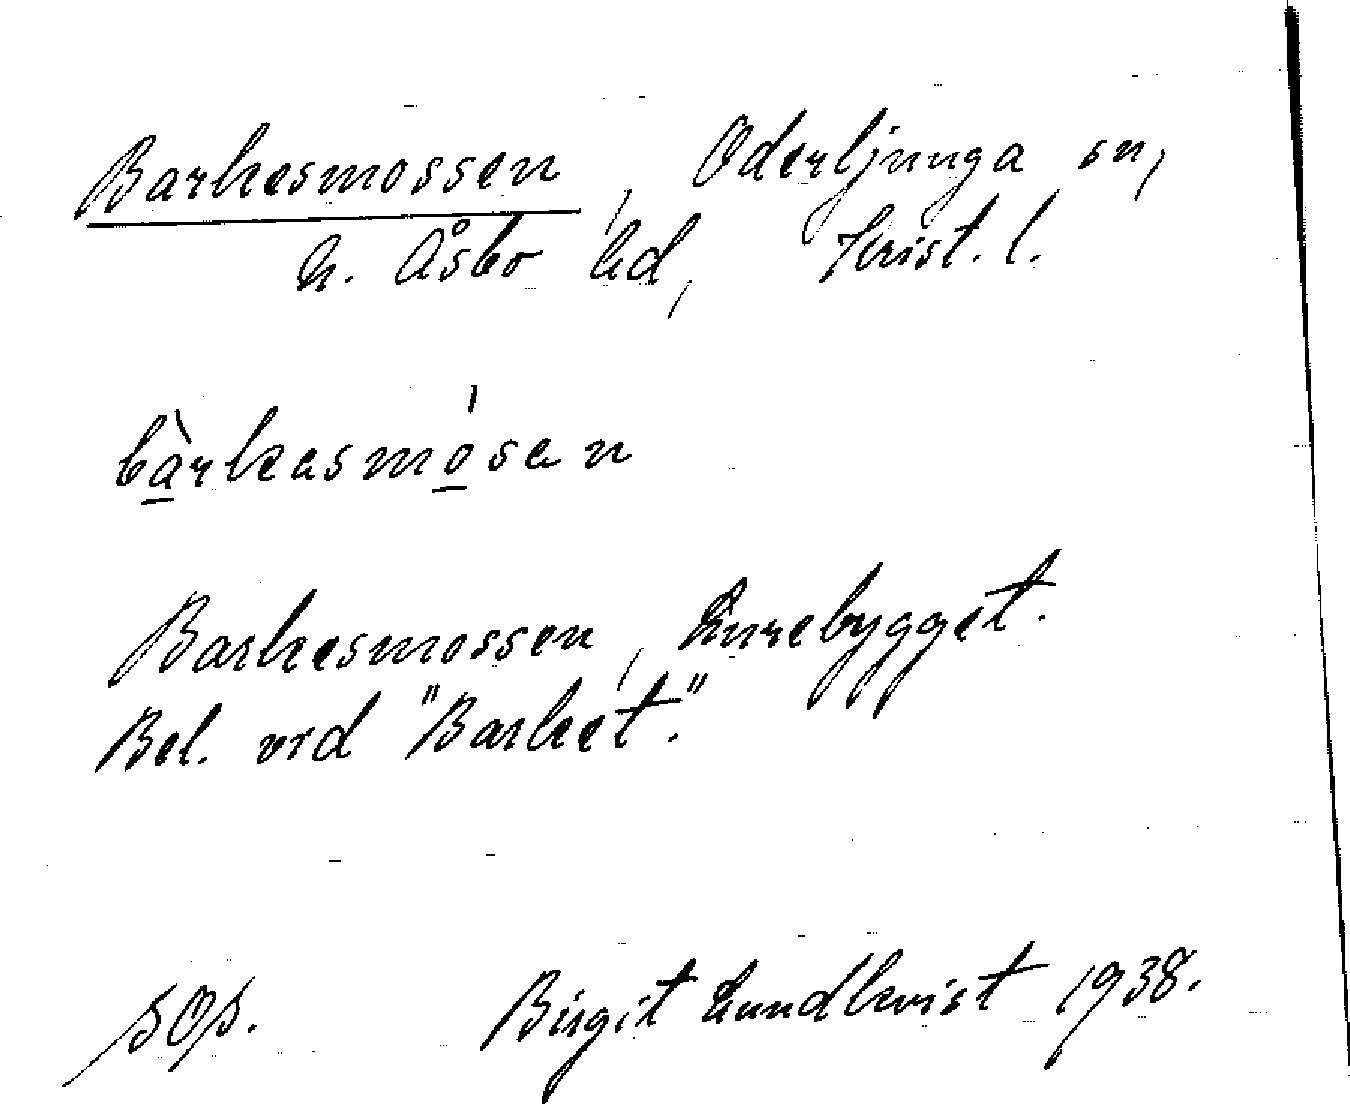 Barkesmossen, Oderljunga sn,
N. Åsbo hd, Krist. l.
bàrkasmósan
Barkesmossen, Lurebygget.
Bel. vid "Barket."
SOA. Birgit Lundkvist 1938.